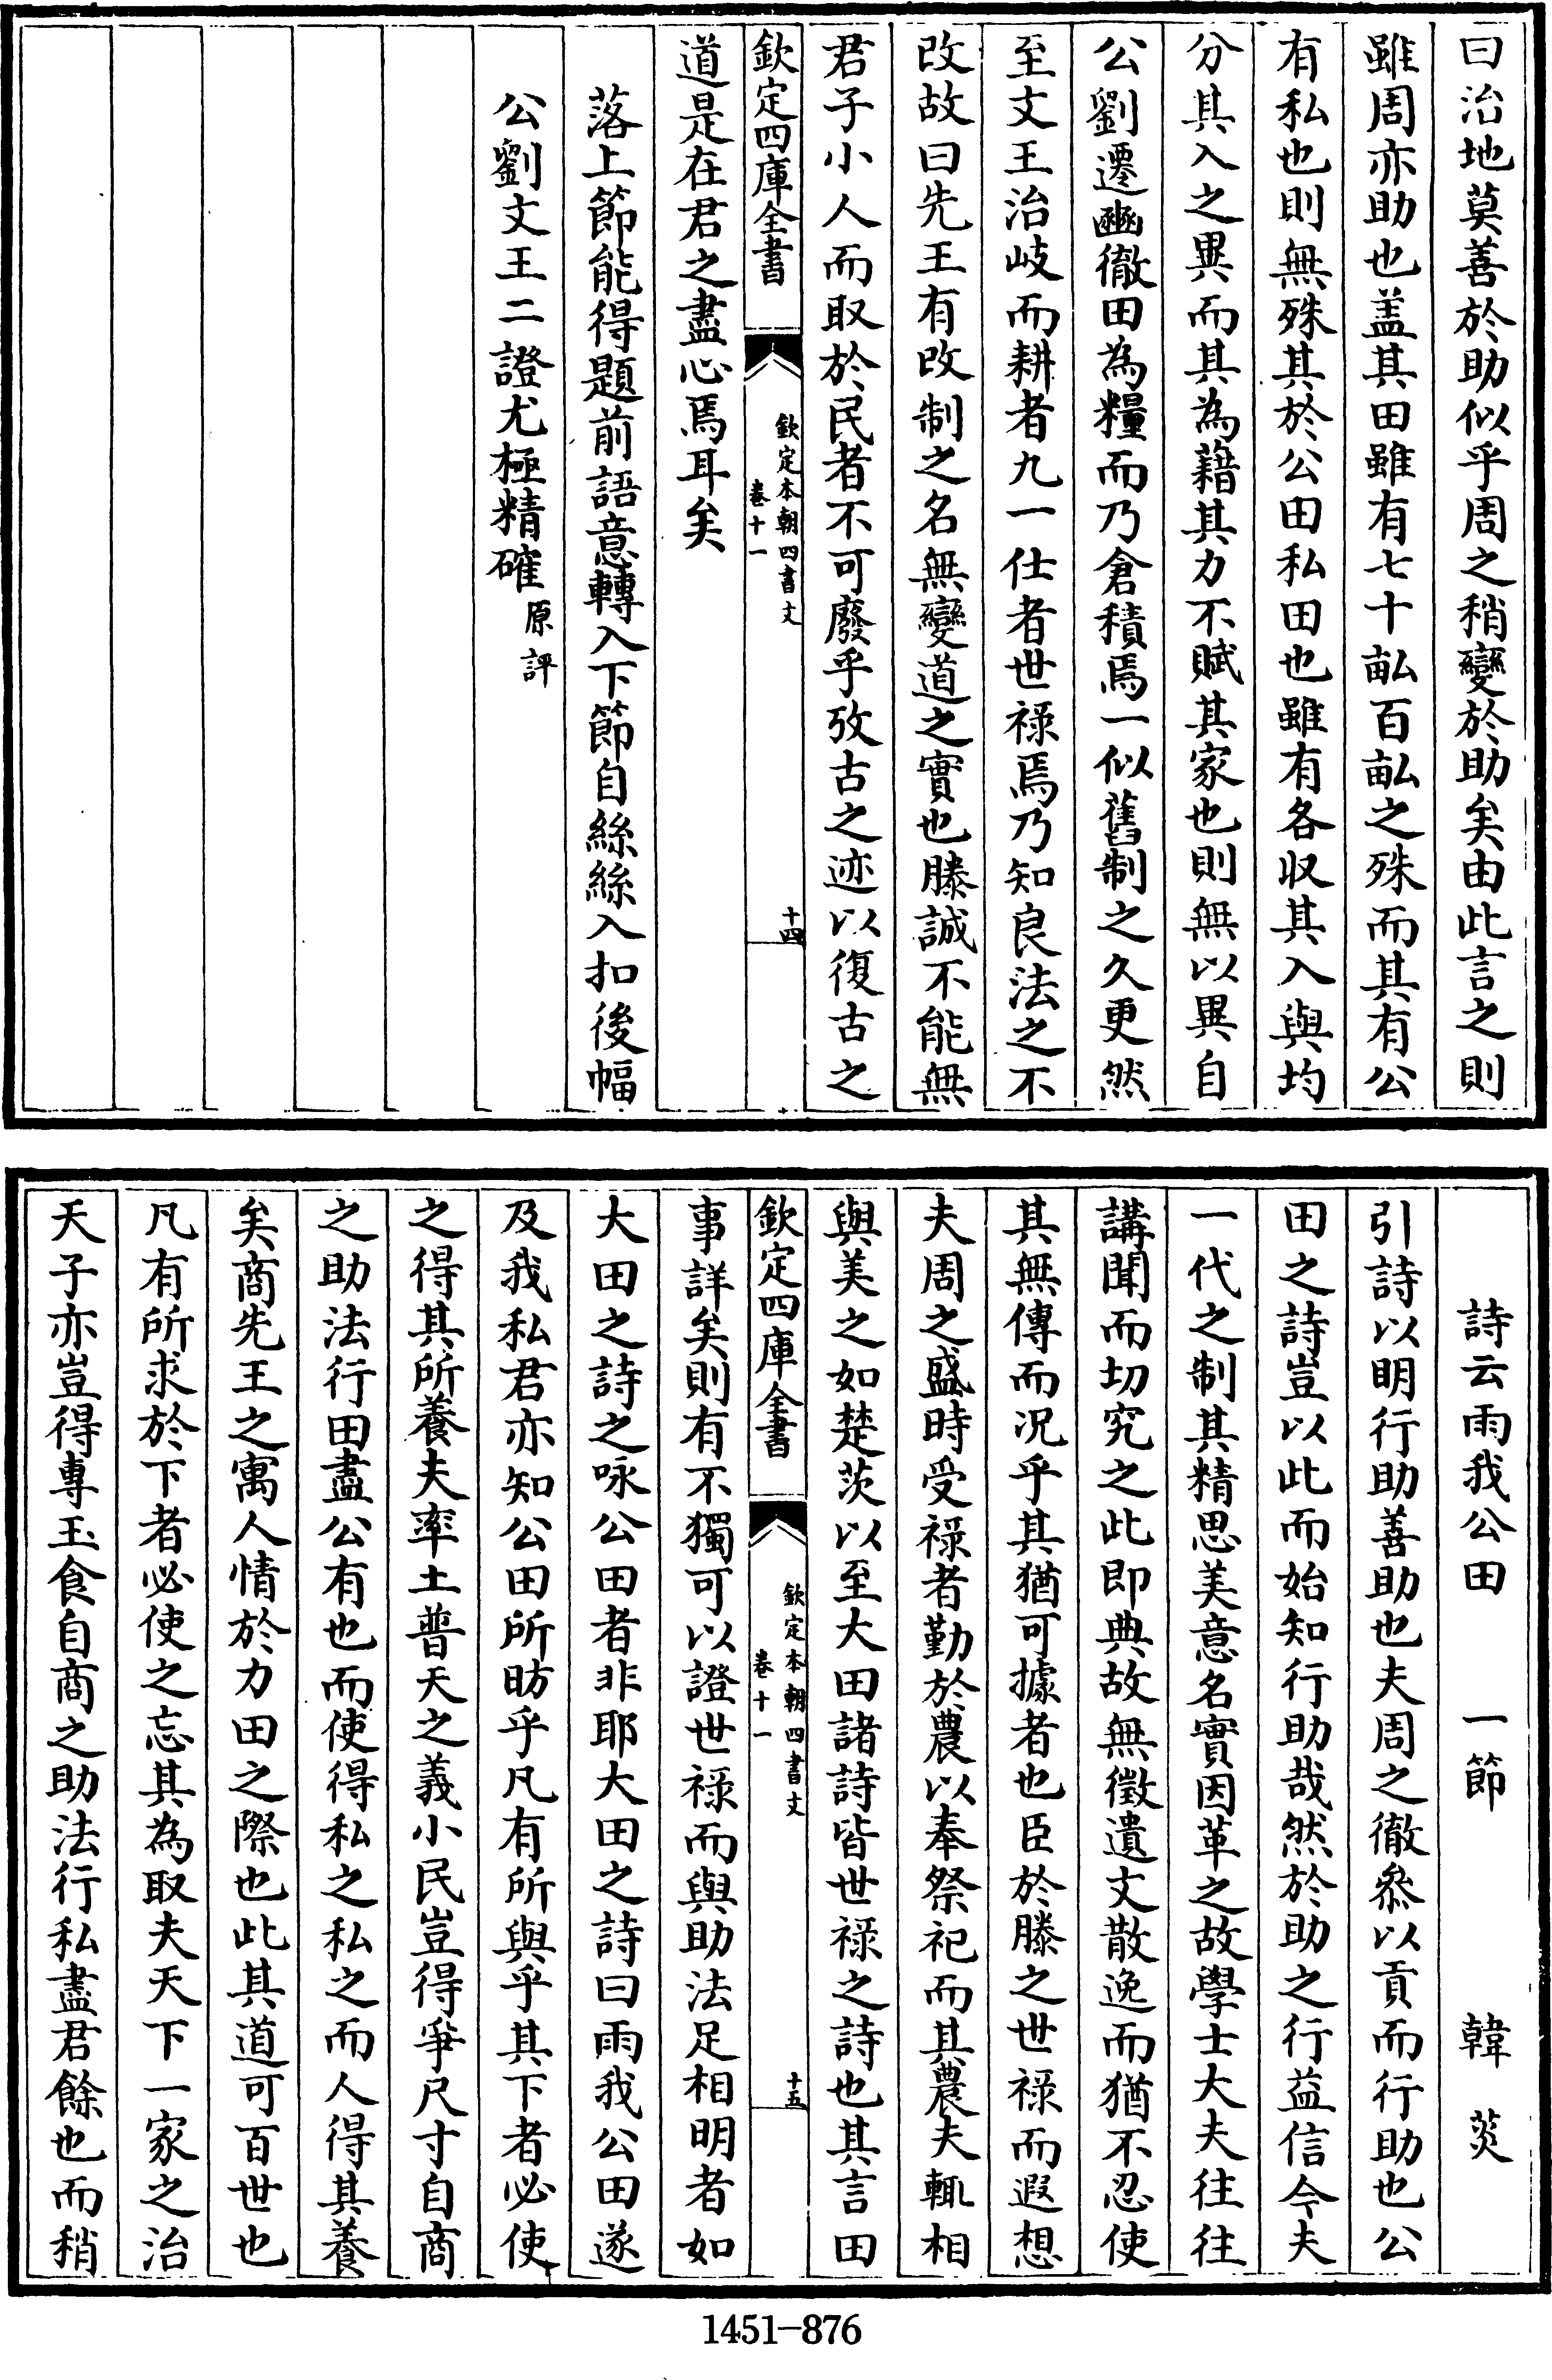 曰治地莫善於助似乎周之稍變於助矣由此言之則
雖周亦助也盖其田雖有七十畝百畝之殊而其有公
有私也則無殊其於公田私田也雖有各收其入與均
分其入之異而其為藉其力不賦其家也則無以異自
公劉遷豳徹田為糧而乃倉積焉一似舊制之久更然
至文王治岐而耕者九一仕者世禄焉乃知良法之不
改故曰先王有改制之名無變道之實也滕誠不能無
君子小人而取於民者不可廢乎攷古之迹以復古之
欽定四庫全書
欽定本朝四書文
卷十一
十四
道是在君之盡心焉耳矣
落上節能得題前語意轉入下節自絲絲入扣後幅
公劉文王二證尤極精確原評
詩云雨我公田 一節 韓菼
引詩以明行助善助也夫周之徹叅以貢而行助也公
田之詩豈以此而始知行助哉然於助之行益信今夫
一代之制其精思美意名實因革之故學士大夫往往
講聞而切究之此即典故無徵遺文散逸而猶不忍使
其無傳而况乎其猶可據者也臣於滕之世禄而遐想
夫周之盛時受禄者勤於農以奉祭祀而其農夫輒相
與美之如楚茨以至大田諸詩皆世禄之詩也其言田
欽定四庫全書
欽定本朝四書文
卷十一
十五
事詳矣則有不獨可以證世禄而與助法足相明者如
大田之詩之咏公田者非耶大田之詩曰雨我公田遂
及我私君亦知公田所昉乎凡有所與乎其下者必使
之得其所養夫率土普天之義小民豈得爭尺寸自商
之助法行田盡公有也而使得私之私之而人得其養
矣商先王之寓人情於力田之際也此其道可百世也
凡有所求於下者必使之忘其為取夫天下一家之治
天子亦豈得專玉食自商之助法行私盡君餘也而稍
1451-876